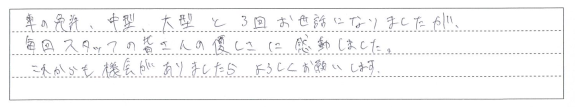 車の免許、中型、大型と3回お世話になりましたが、
毎回スタッフの皆さんの優しさに感動しました。
これからも機会がありましたら よろしくお願いします。